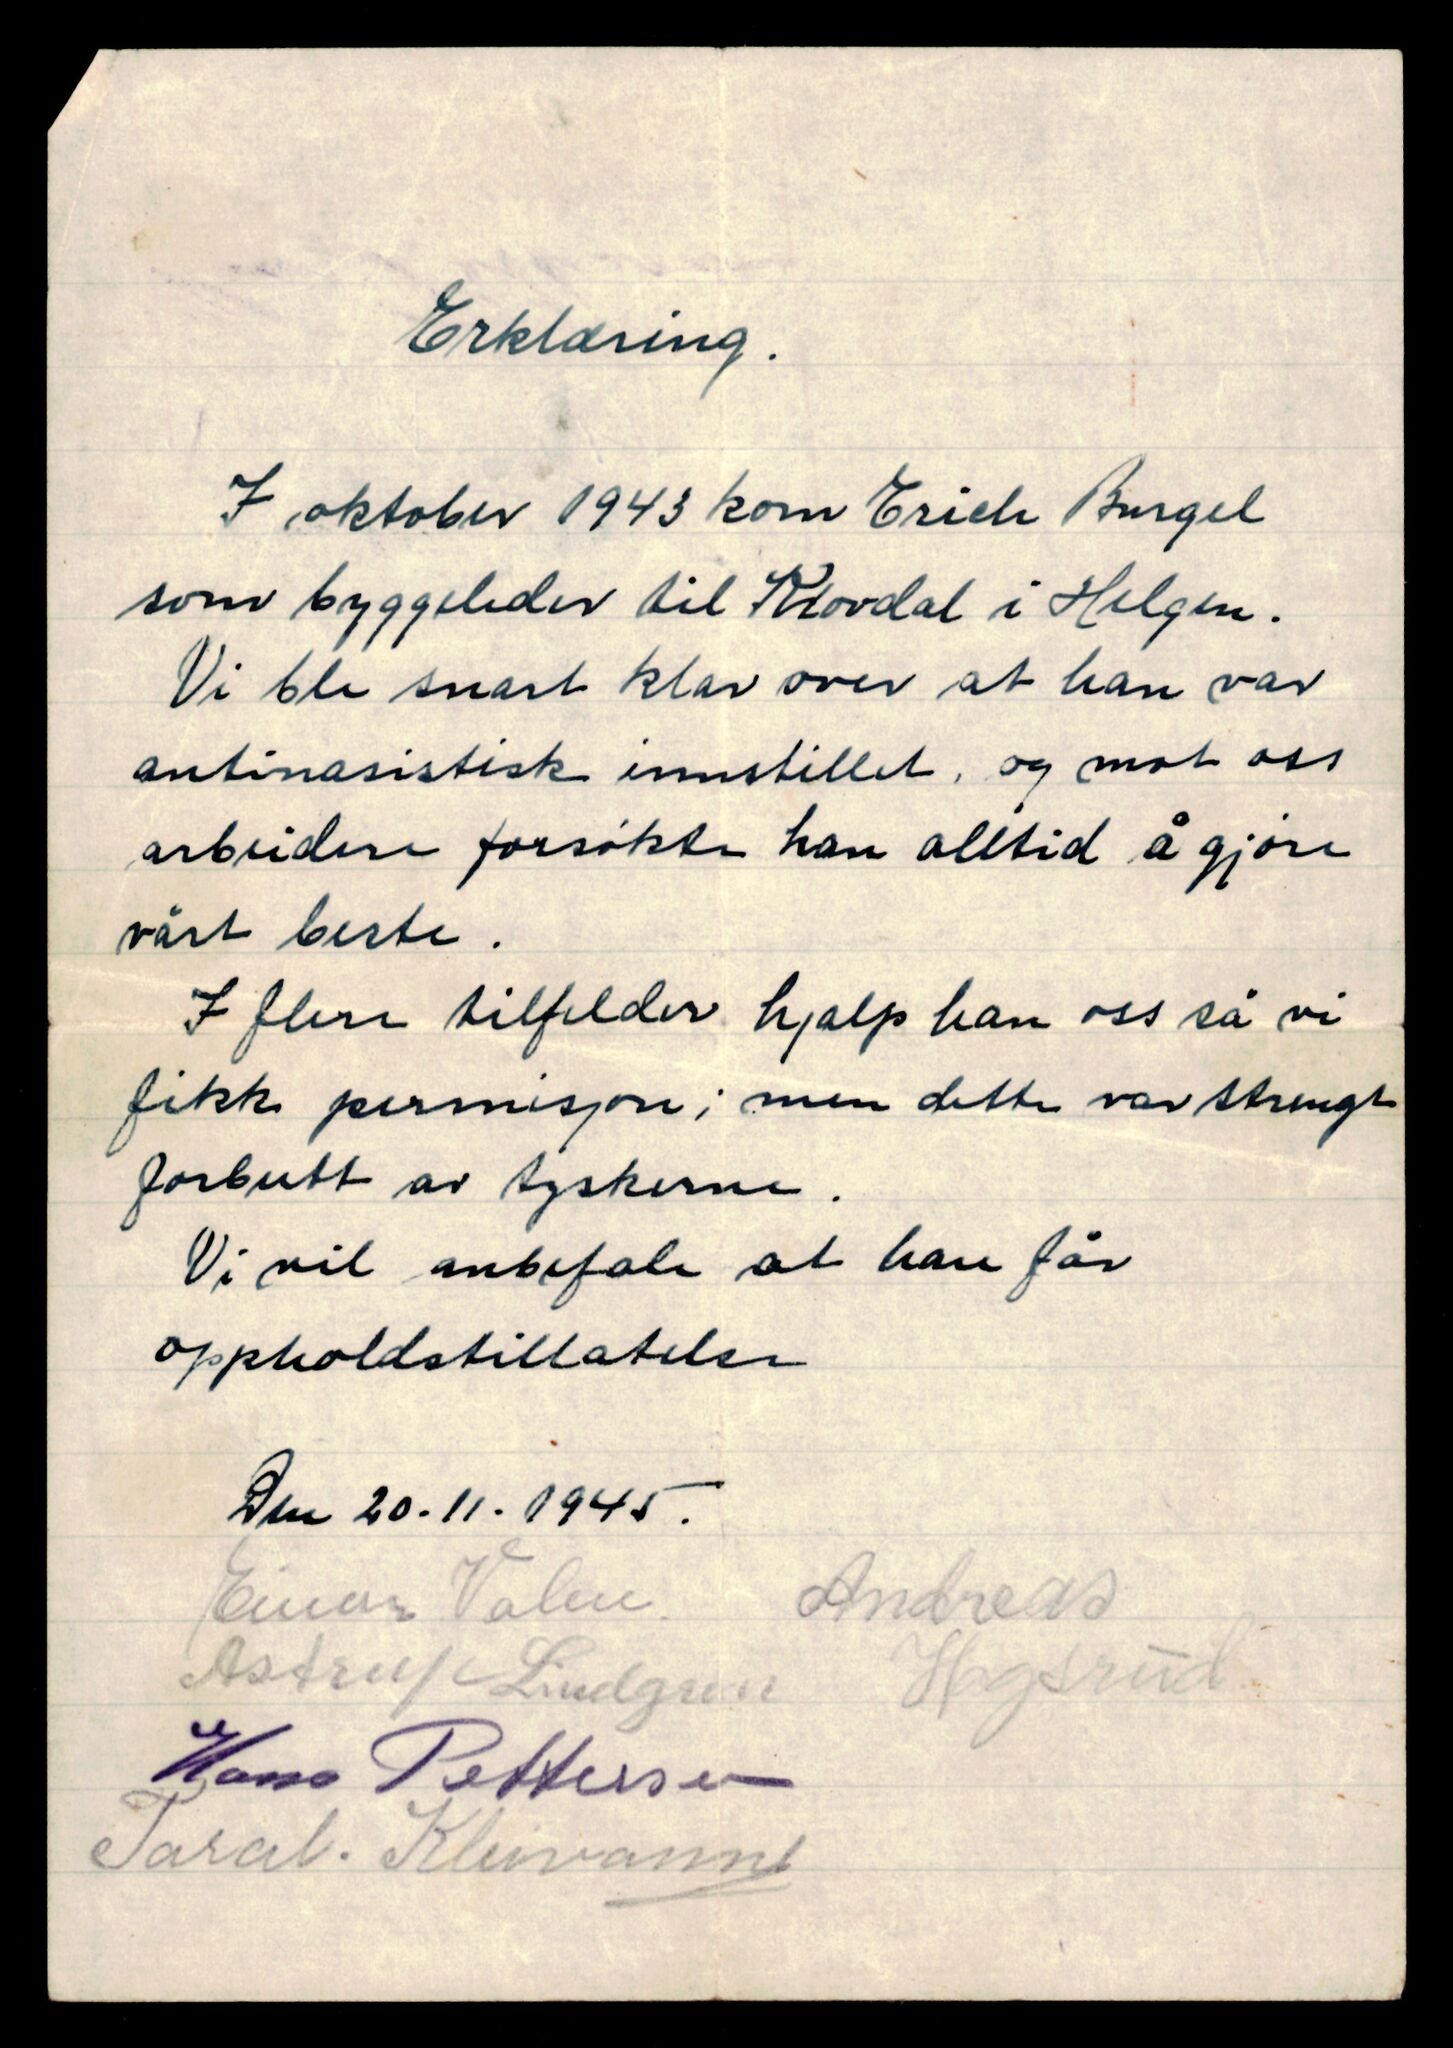 Erklæring.
I oktober 1943 kom Erich Burgel
som byggeleder til Klovdal i Helgen.
Vi ble snart klar over at han var
antinasistisk innstillet, og mot oss
arbeidere forsøkte han alltid å gjøre
vårt beste.
I flere tilfelder hjalp han oss så vi
fikk permisjon; men dette var strengt
forbutt av tyskerne.
Vi vil anbefale at han får
oppholdstillatelse
Den 20-11-1945.
Einar Valen Andreas
Astrup Lindgren Hogsrud
Hans Pettersen
Taral. Kleivannt